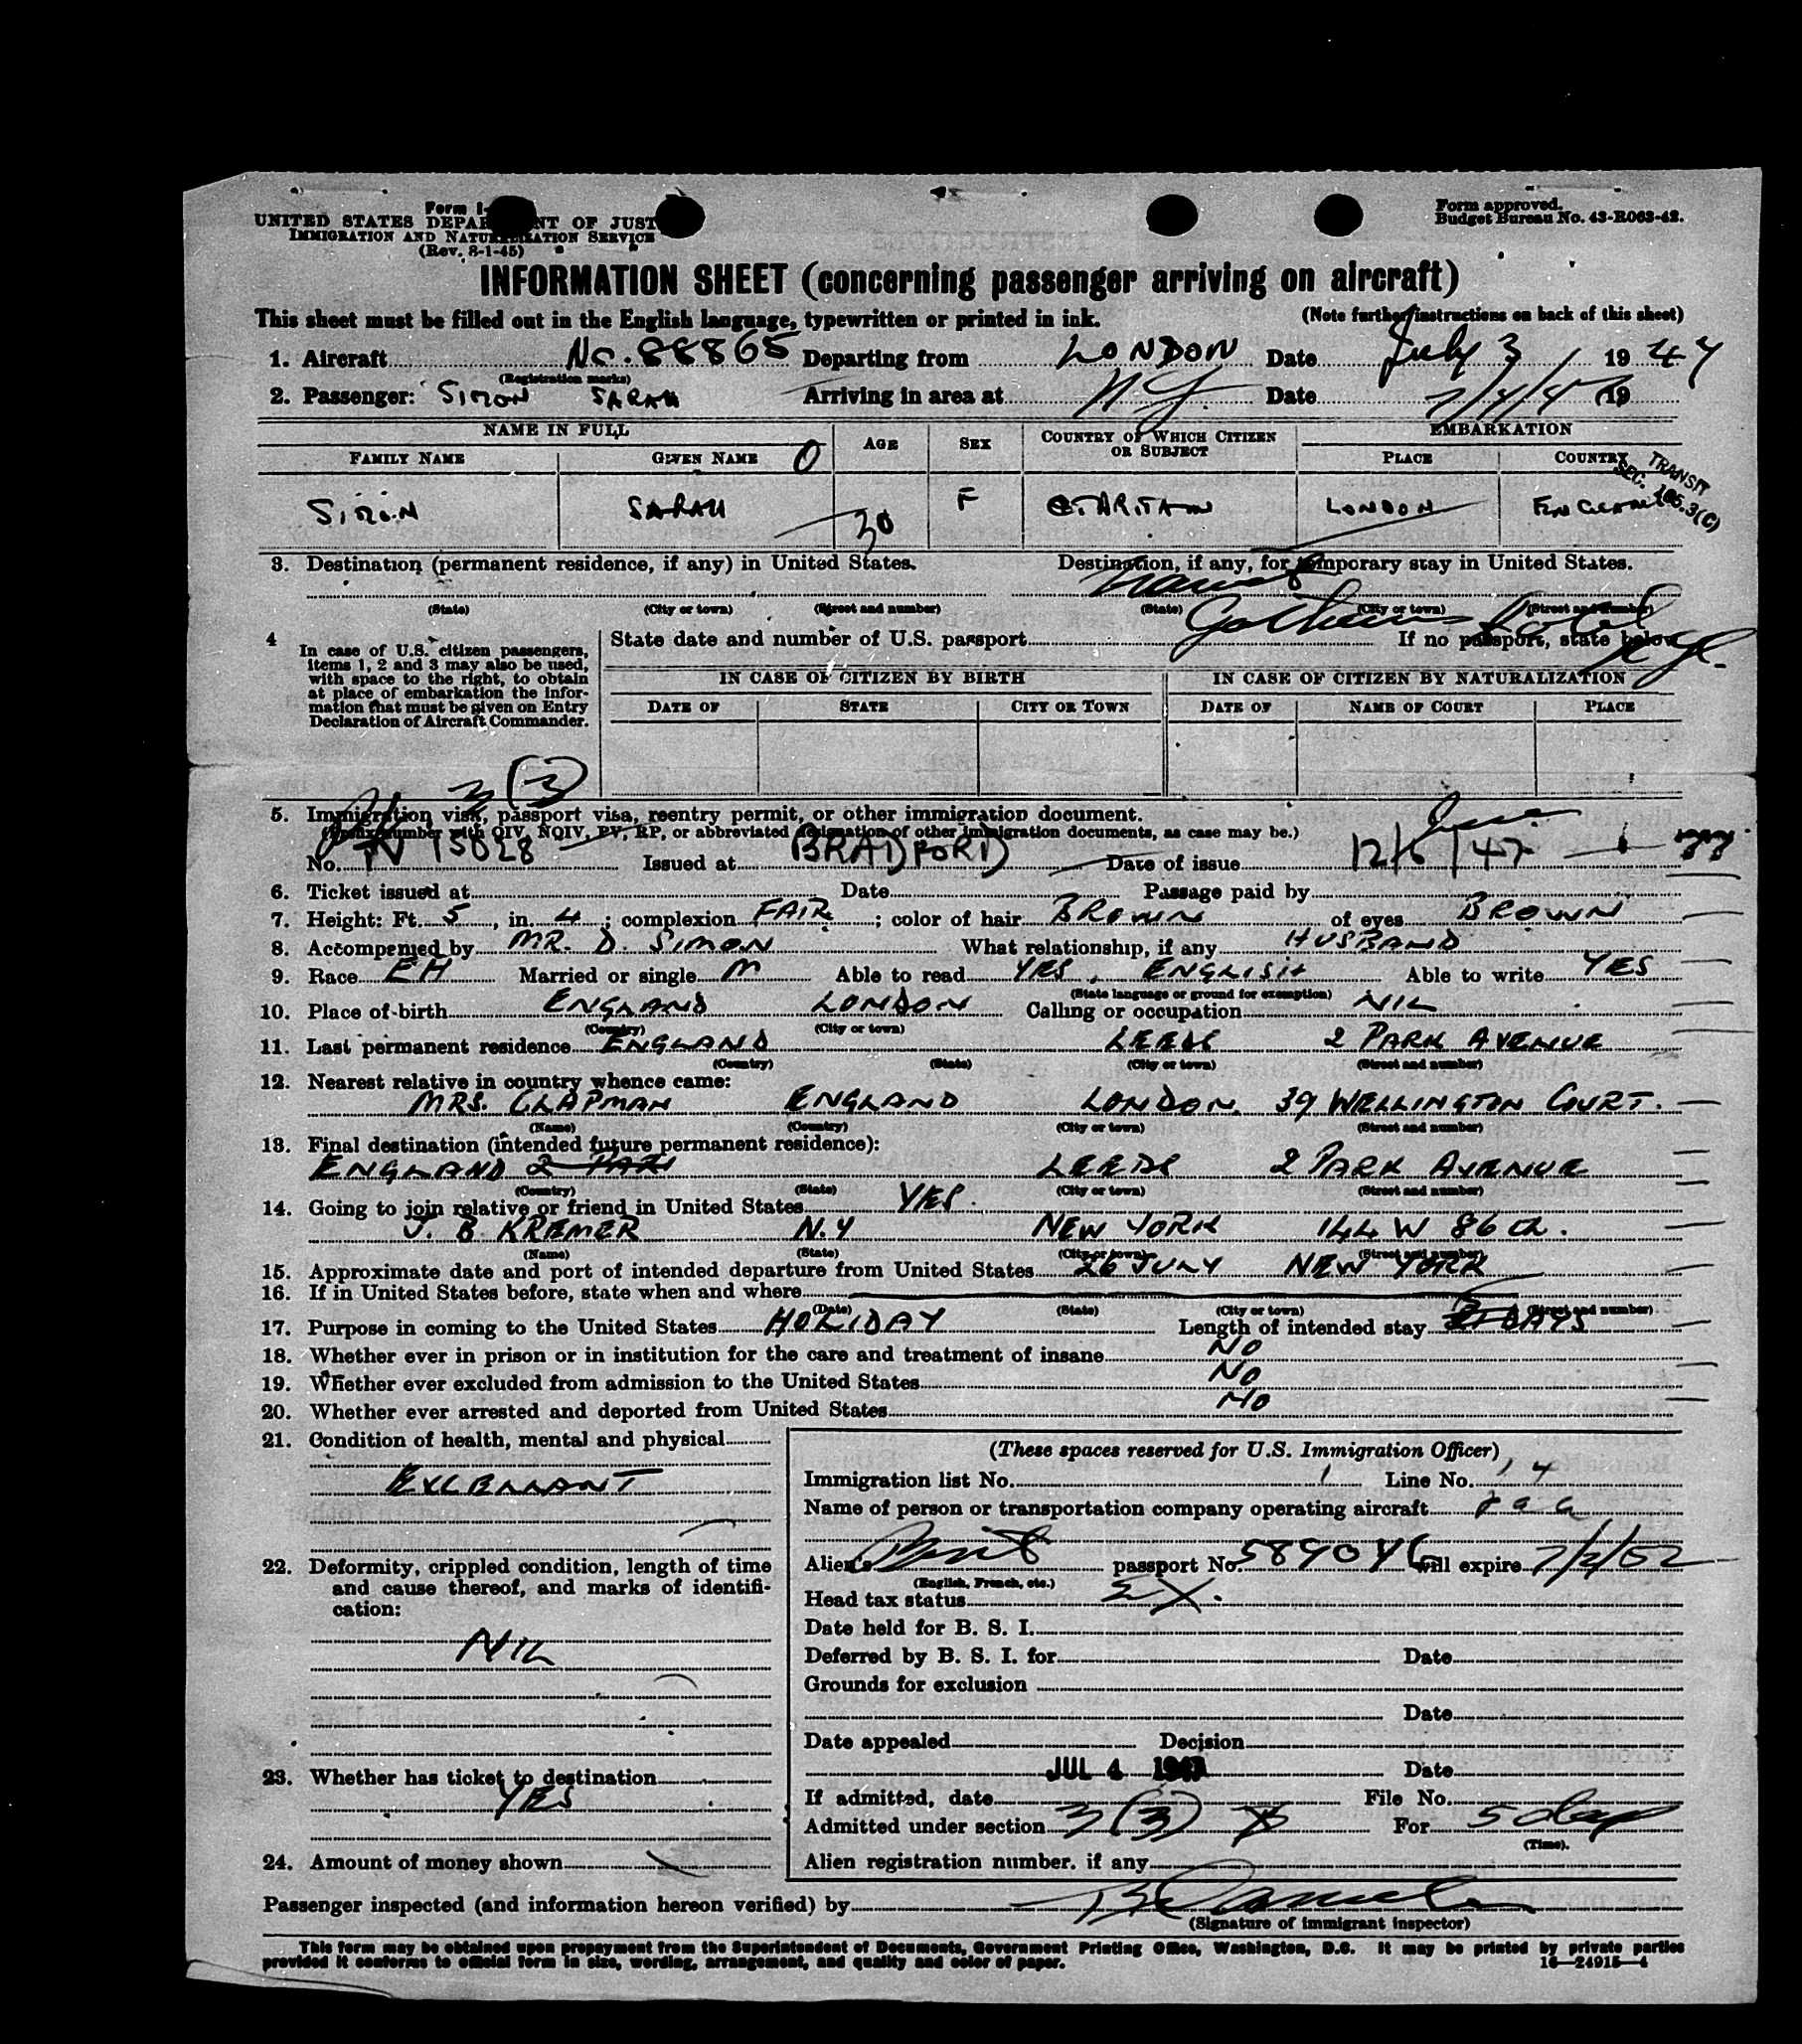 Form I-
UNITED STATES DEPAR NT OF JUST
IMMIGRATION AND NATURALIZATION SERVICE
(Rev. 8-1-45)
Form approved.
Budget Bureau No. 43-R063-42.
INFORMATION SHEET (concerning passenger arriving on aircraft)
This sheet must be filled out in the English language, typewritten or printed in ink. (Note further instructions on back of this sheet)
1. Aircraft No. 88865 Departing from LONDON Date July 3 1947
(Registration marks)
2. Passenger: SIMON SARAH Arriving in area at N.Y. Date 7/4/47 19
NAME IN FULL AGE SEX COUNTRY OF WHICH CITIZEN OR SUBJECT EMBARKATION
FAMILY NAME GIVEN NAME O PLACE COUNTRY
TRANSIT
SEC. 165.3(C)
SIMON SARAH 30 F GT. BRITAIN LONDON ENGLAND
3. Destination (permanent residence, if any) in United States. Destination, if any, for temporary stay in United States.
(State) (City or town) (Street and number) (State) (City or town) (Street and number)
Gotham Hotel
4 In case of U.S. citizen passengers, items 1, 2 and 3 may also be used, with space to the right, to obtain at place of embarkation the information that must be given on Entry Declaration of Aircraft Commander.
State date and number of U.S. passport If no passport, state below
IN CASE OF CITIZEN BY BIRTH IN CASE OF CITIZEN BY NATURALIZATION
DATE OF STATE CITY OR TOWN DATE OF NAME OF COURT PLACE
3(3)
5. Immigration visa, passport visa, reentry permit, or other immigration document.
(Prefix number with QIV, NQIV, PV, RP, or abbreviated designation of other immigration documents, as case may be.)
June
No. PV 15028 Issued at BRADFORD Date of issue 12/6/47
6. Ticket issued at Date Passage paid by
7. Height: Ft. 5, in. 4; complexion FAIR; color of hair BROWN of eyes BROWN
8. Accompanied by MR. D. SIMON What relationship, if any HUSBAND
9. Race EH Married or single M Able to read YES, ENGLISH Able to write YES
(State language or ground for exemption)
10. Place of birth ENGLAND LONDON Calling or occupation NIL
(Country) (City or town)
11. Last permanent residence ENGLAND LEEDS 2 PARK AVENUE
(Country) (State) (City or town) (Street and number)
12. Nearest relative in country whence came:
MRS. CLAPMAN ENGLAND LONDON 39 WELLINGTON COURT.
(Name) (Country) (City or town) (Street and number)
13. Final destination (intended future permanent residence):
ENGLAND 2 PAR LEEDS 2 PARK AVENUE
(Country) (State) (City or town) (Street and number)
14. Going to join relative or friend in United States YES.
J. B. KREMER N.Y NEW YORK 144 W 86th.
(Name) (State) (City or town) (Street and number)
15. Approximate date and port of intended departure from United States 26 JULY NEW YORK
16. If in United States before, state when and where
(Date) (State) (City or town) (Street and number)
17. Purpose in coming to the United States HOLIDAY Length of intended stay DAYS
18. Whether ever in prison or in institution for the care and treatment of insane NO
19. Whether ever excluded from admission to the United States NO
20. Whether ever arrested and deported from United States NO
21. Condition of health, mental and physical
EXCELLANT
22. Deformity, crippled condition, length of time and cause thereof, and marks of identification:
NIL
23. Whether has ticket to destination
YES
24. Amount of money shown
(These spaces reserved for U.S. Immigration Officer)
Immigration list No. 1 Line No. 4
Name of person or transportation company operating aircraft
Alien's British passport No. 589046 will expire 7/2/52
(English, French, etc.)
Head tax status EX.
Date held for B. S. I.
Deferred by B. S. I. for Date
Grounds for exclusion
Date
Date appealed Decision
JUL 4 1947 Date
If admitted, date File No.
Admitted under section 3(3) For 5 days
(Time).
Alien registration number, if any
Passenger inspected (and information hereon verified) by
(Signature of immigrant inspector)
This form may be obtained upon prepayment from the Superintendent of Documents, Government Printing Office, Washington, D.C. It may be printed by private parties
provided it conforms to official form in size, wording, arrangement, and quality and color of paper. 16—24915—4